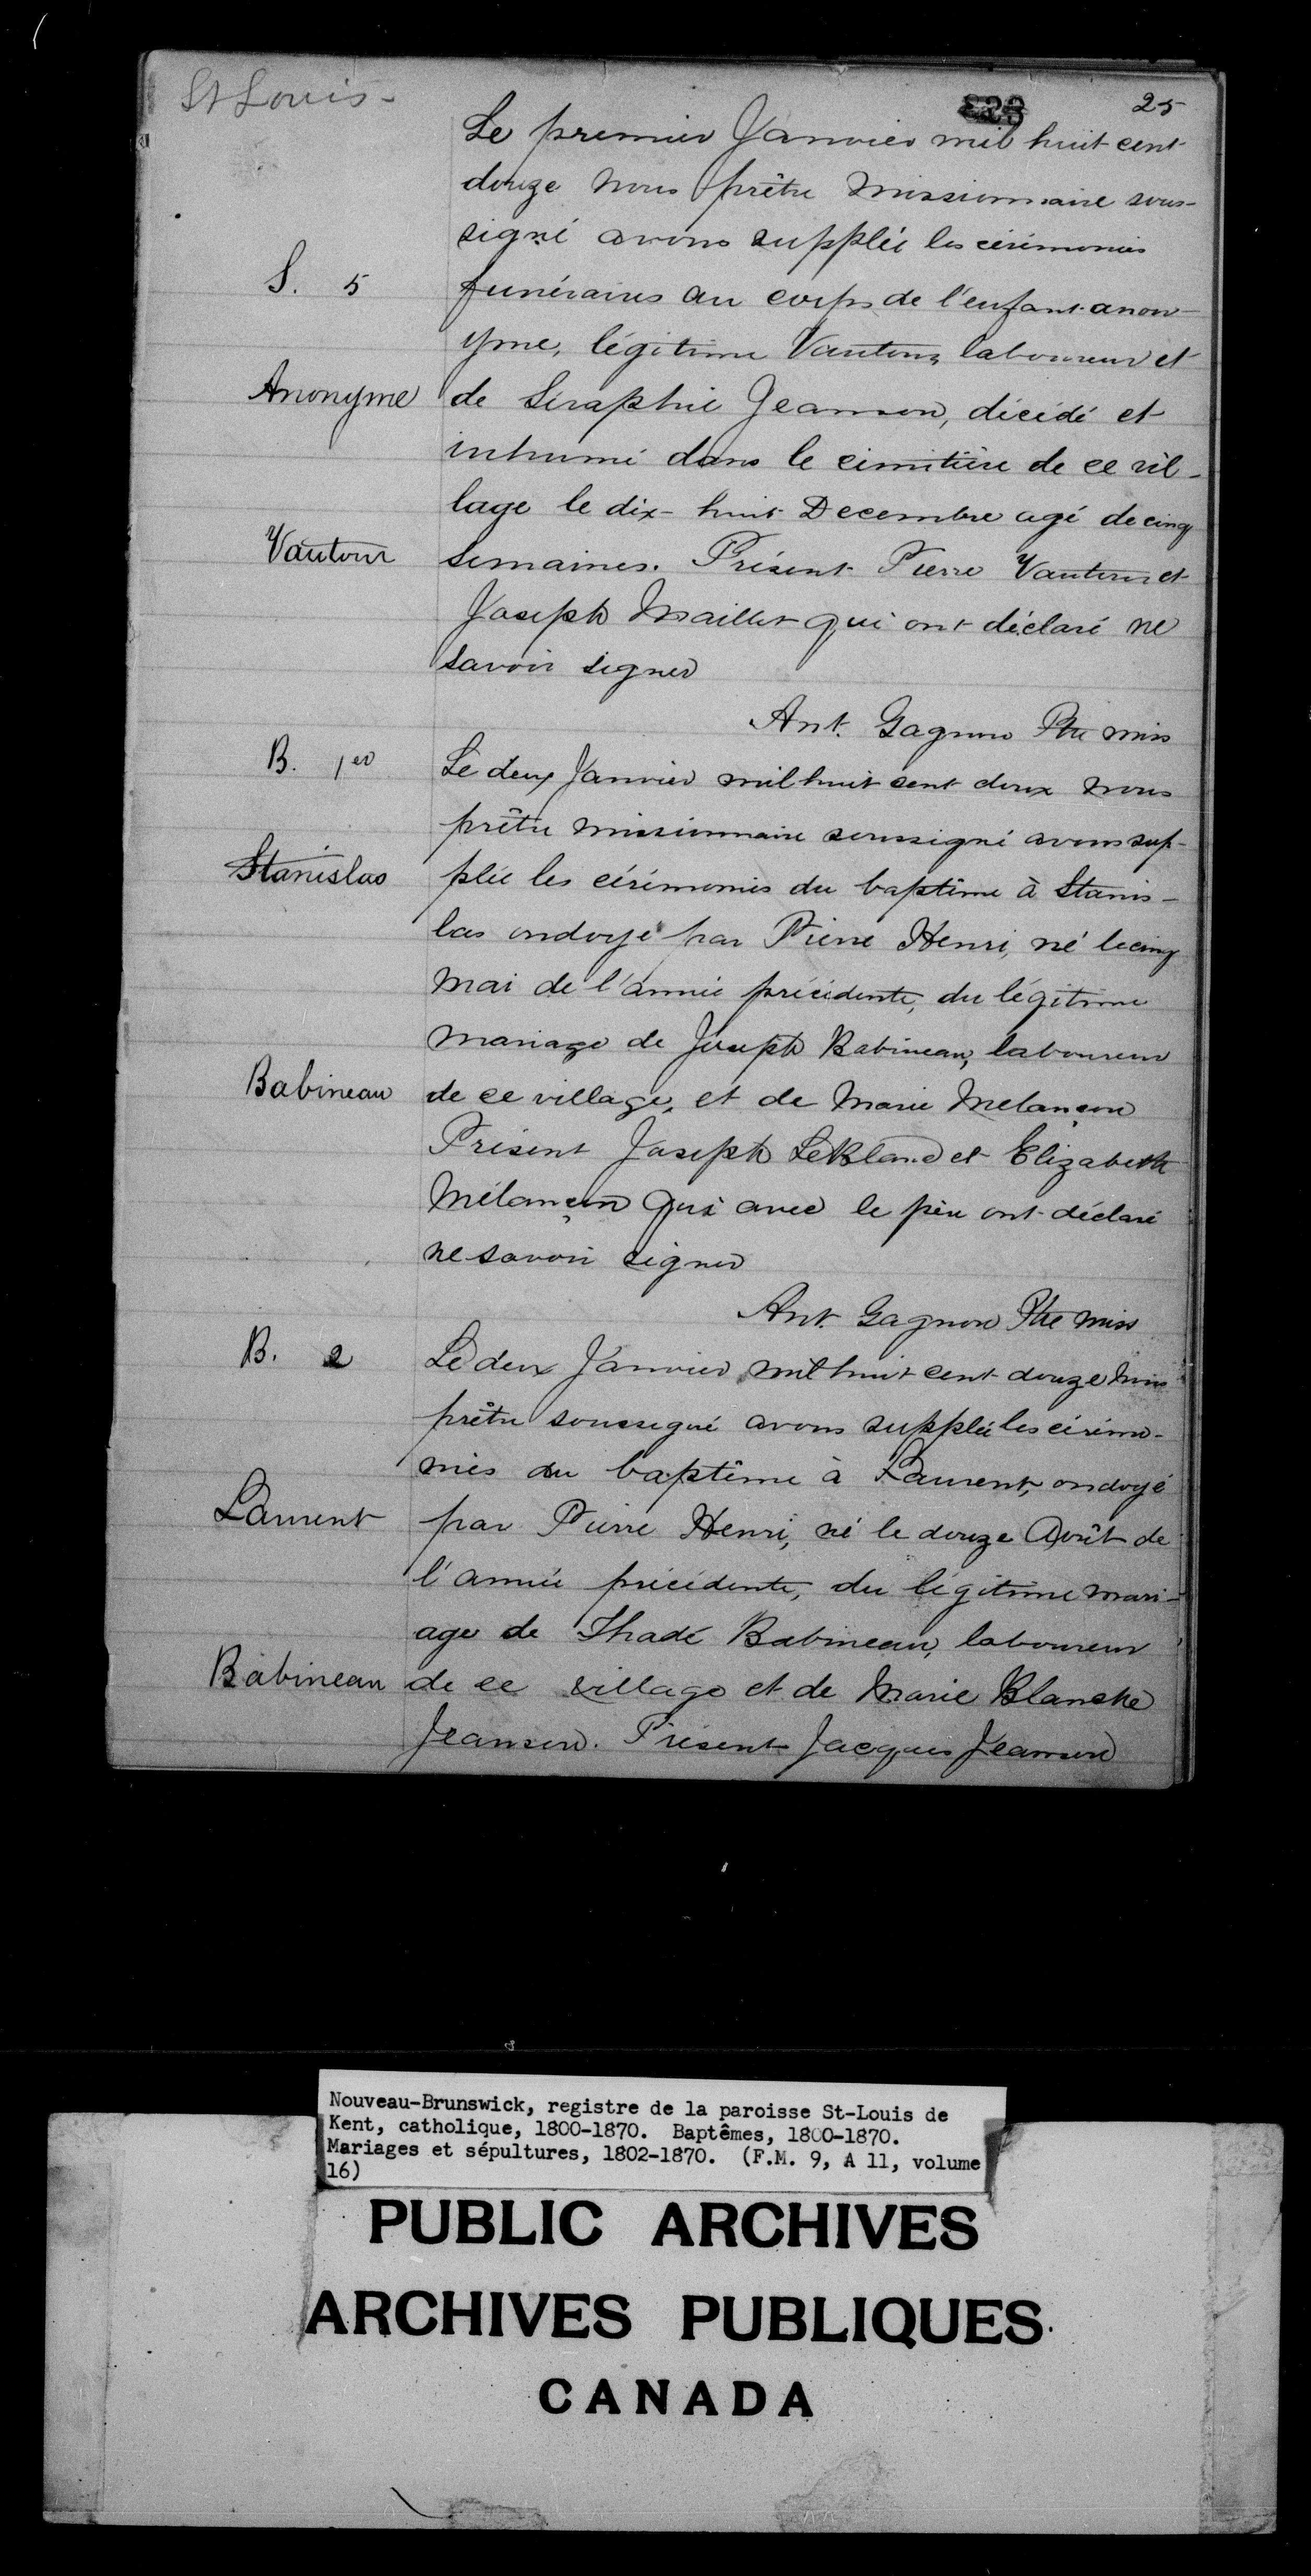 St Louis-
25
Le premier Janvier mil huit cent
douze nous prêtre missionnaire sous-
signé avons supplée les cérémonies
S. 5
funéraires au corps de l'enfant anon-
yme, légitime Vautour, laboureur et
Anonyme
de Séraphie Jeanson, décédé et
inhumé dans le cimitière de ce vil-
lage le dix-huit Decembre agé de cinq
Vautour
semaines. Présent Pierre Vautour et
Joseph Maillet qui ont déclaré ne
savoir signer
Ant. Gagnon Ptre miss
B. 1er
Le deux Janvier mil huit cent doux nous
prêtre missionnaire soussigné avons sup-
Stanislas
plée les cérémonies du baptême à Stanis-
las ondoyé par Pierre Henri, né le cinq
Mai de l'année précédente, du légitime
mariage de Joseph Babineau, laboureur
Babineau
de ce village, et de Marie Melançon
Présent Joseph LeBlanc et Elizabeth
Mélançon qui avec le père ont déclaré
ne savoir signer
Ant. Gagnon Ptre miss
B. 2
Le deux Janvier mil huit cent douze nous
prêtre soussigné avons supplée les cérémo-
nies du baptême à Laurent, ondoyé
Laurent
par Pierre Henri, né le douze Août de
l'année précédente, du légitime mari-
age de Thadé Babineau, laboureur
Babineau
de ce village et de Marie Blanche
Jeanson. Présent Jacques Jeanson
Nouveau-Brunswick, registre de la paroisse St-Louis de
Kent, catholique, 1800-1870. Baptêmes, 1800-1870.
Mariages et sépultures, 1802-1870. (F.M. 9, A 11, volume
16)
PUBLIC ARCHIVES
ARCHIVES PUBLIQUES
CANADA